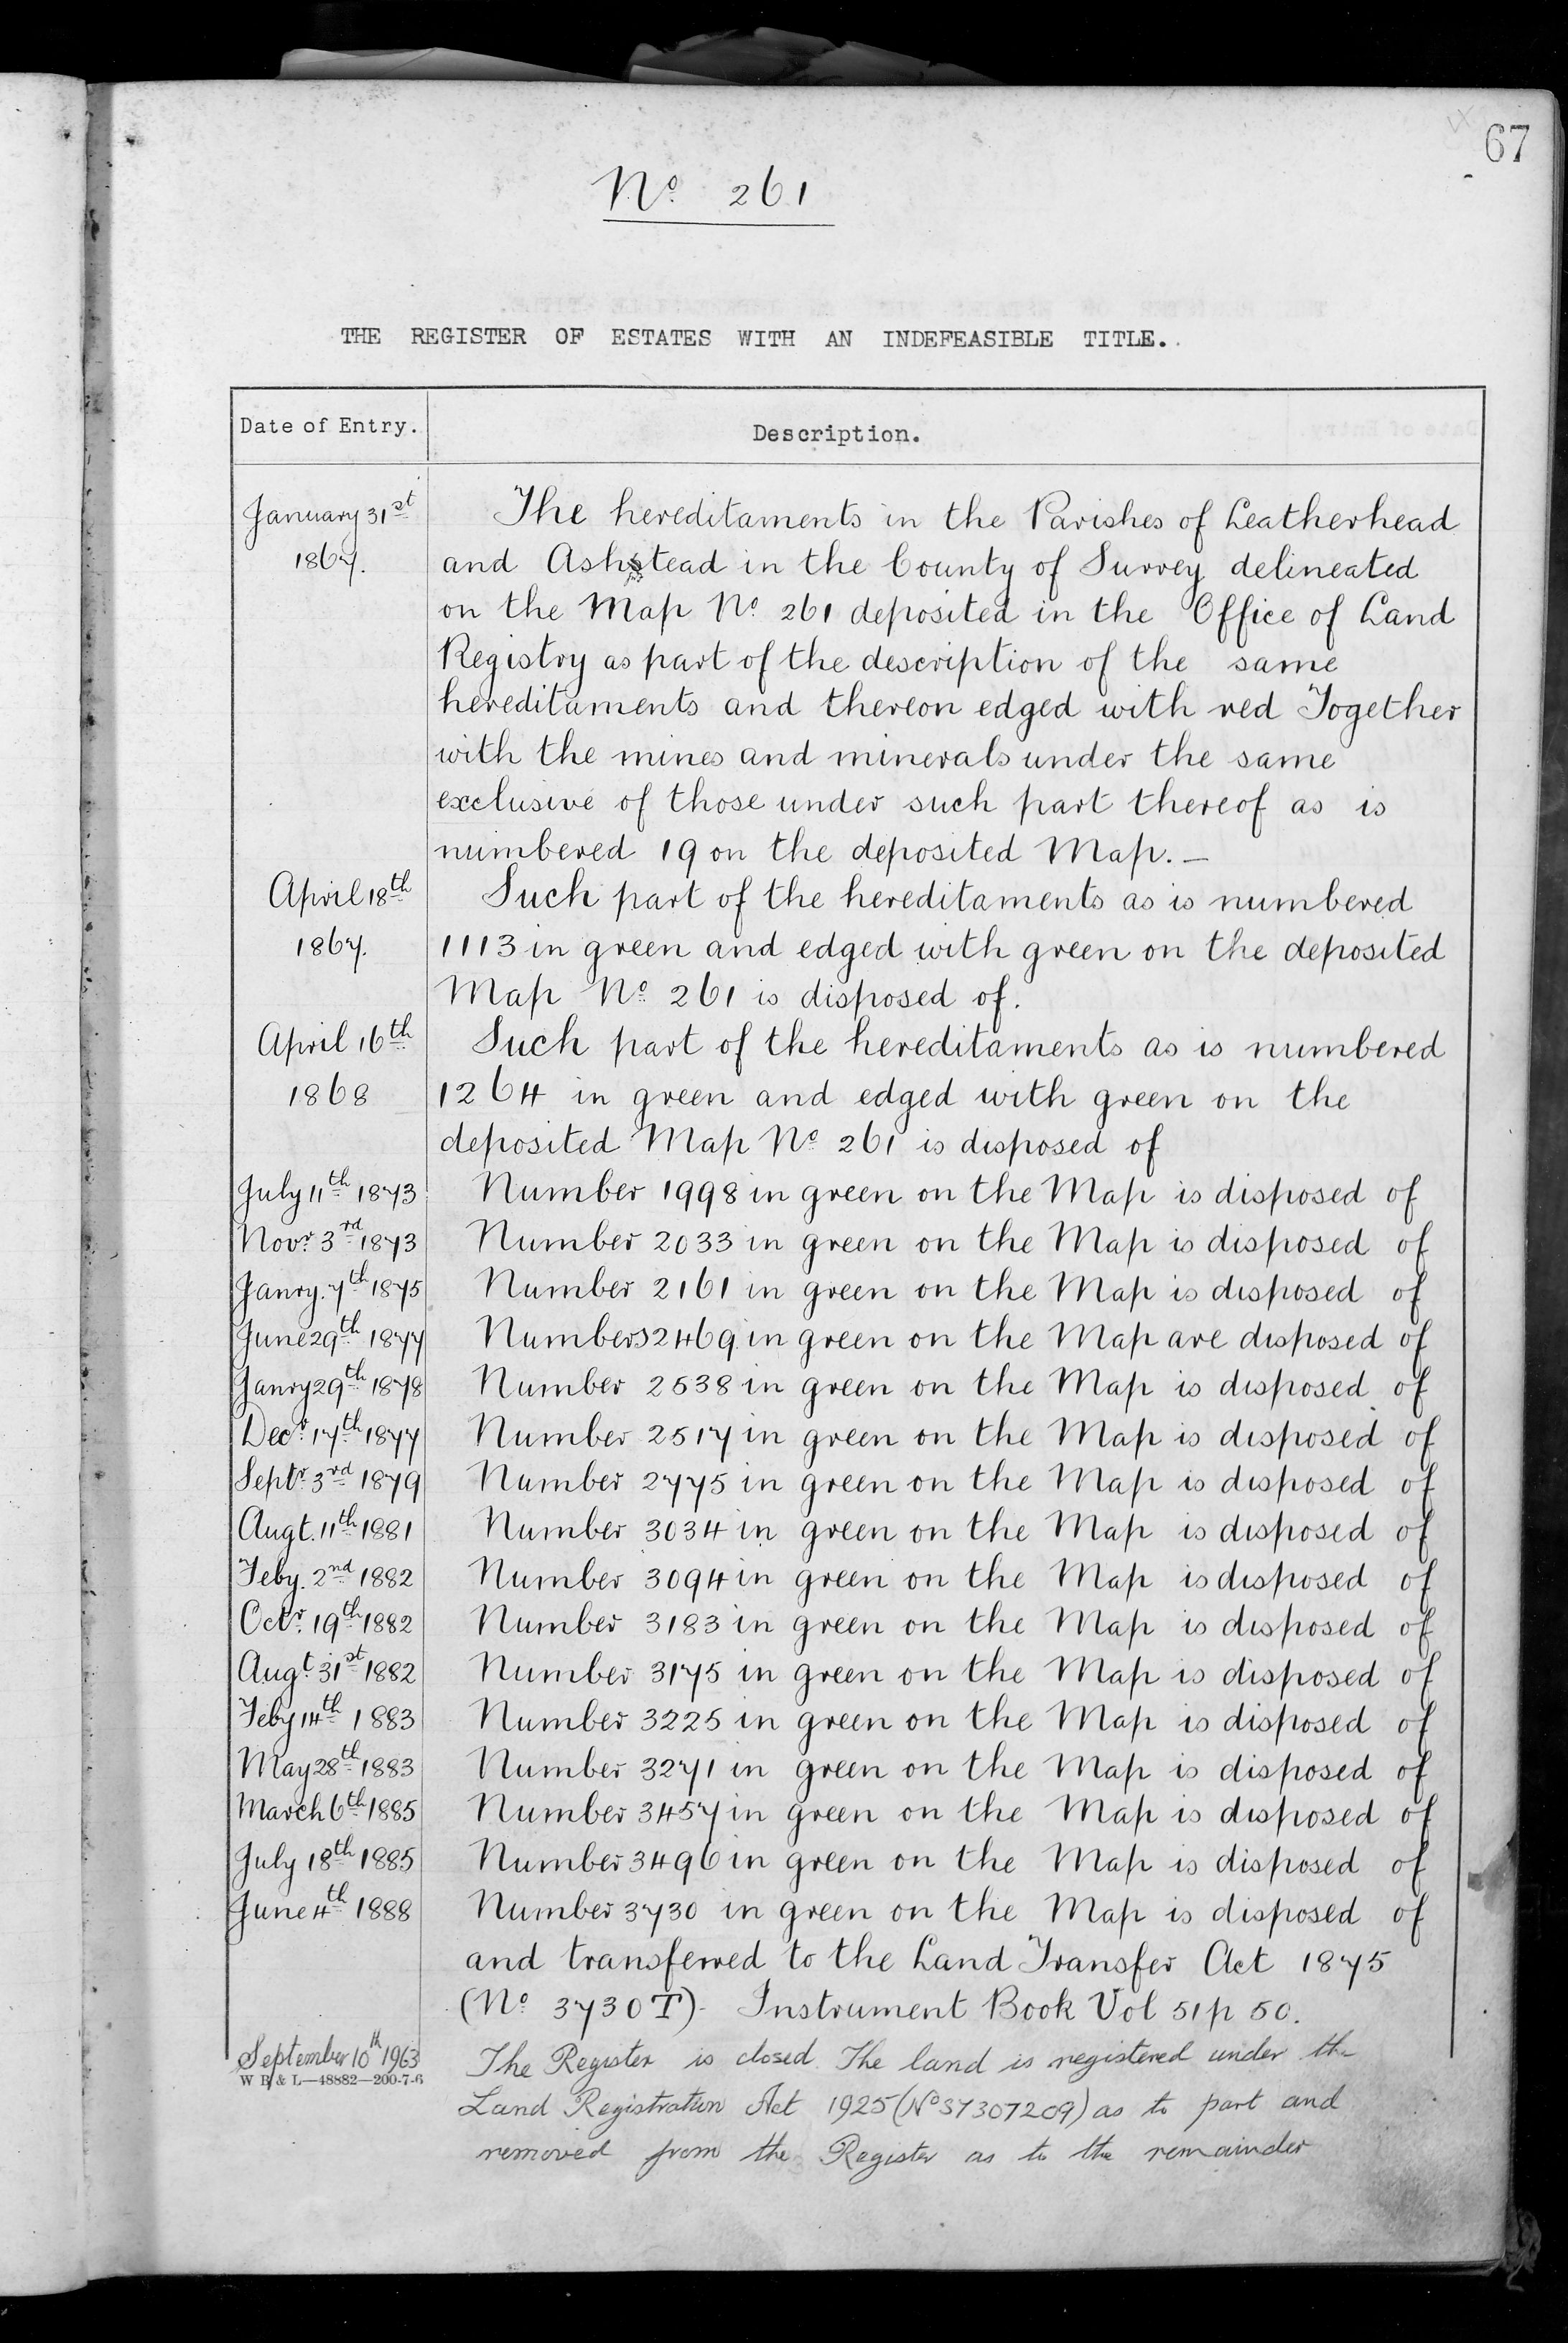 67
No. 261
THE REGISTER OF ESTATES WITH AN INDEFEASIBLE TITLE.
Date of Entry. Description.
January 31st The hereditaments in the Parishes of Leatherhead
1867. and Ashstead in the County of Surrey delineated
on the Map No. 261 deposited in the Office of Land
Registry as part of the description of the same
hereditaments and thereon edged with red Together
with the mines and minerals under the same
exclusive of those under such part thereof as is
numbered 19 on the deposited Map. —
April 18th Such part of the hereditaments as is numbered
1867. 1113 in green and edged with green on the deposited
Map No. 261 is disposed of.
April 16th Such part of the hereditaments as is numbered
1868 1264 in green and edged with green on the
deposited Map No. 261 is disposed of
July 11th 1873 Number 1998 in green on the Map is disposed of
Novr. 3rd 1873 Number 2033 in green on the Map is disposed of
Janry. 7th 1875 Number 2161 in green on the Map is disposed of
June 29th 1877 Numbers 2469 in green on the Map are disposed of
Janry 29th 1878 Number 2538 in green on the Map is disposed of
Decr. 17th 1877 Number 2517 in green on the Map is disposed of
Septr. 3rd 1879 Number 2775 in green on the Map is disposed of
Augt. 11th 1881 Number 3034 in green on the Map is disposed of
Feby. 2nd 1882 Number 3094 in green on the Map is disposed of
Octr. 19th 1882 Number 3183 in green on the Map is disposed of
Augt. 31st 1882 Number 3175 in green on the Map is disposed of
Feby 14th 1883 Number 3225 in green on the Map is disposed of
May 28th 1883 Number 3271 in green on the Map is disposed of
March 6th 1885 Number 3457 in green on the Map is disposed of
July 18th 1885 Number 3496 in green on the Map is disposed of
June 4th 1888 Number 3730 in green on the Map is disposed of
and transferred to the Land Transfer Act 1875
(No. 3730 T). Instrument Book Vol 51 p 50.
September 10th 1963 The Register is closed. The land is registered under the
W B & L—48882—200-7-6
Land Registration Act 1925 (No SY307209) as to part and
removed from the Register as to the remainder